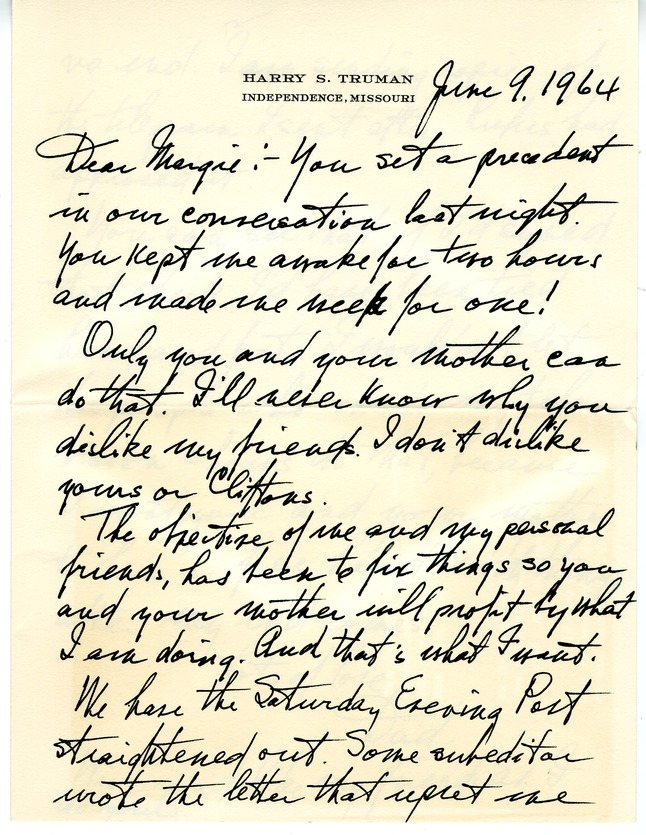 HARRY S. TRUMAN
INDEPENDENCE, MISSOURI
June 9, 1964
Dear Margie:- You set a precedent
in our conversation last night.
You kept me awake for two hours
and made me weep for one!
Only you and your mother can
do that. I'll never know why you
dislike my friends. I don't dislike
yours or Cliftons.
The objective of me and my personal
friends, has been to fix things so you
and your mother will profit by what
I am doing. And that's what I want.
We have the Saturday Evening Post
straightened out. Some subeditor
wrote the letter that upset me